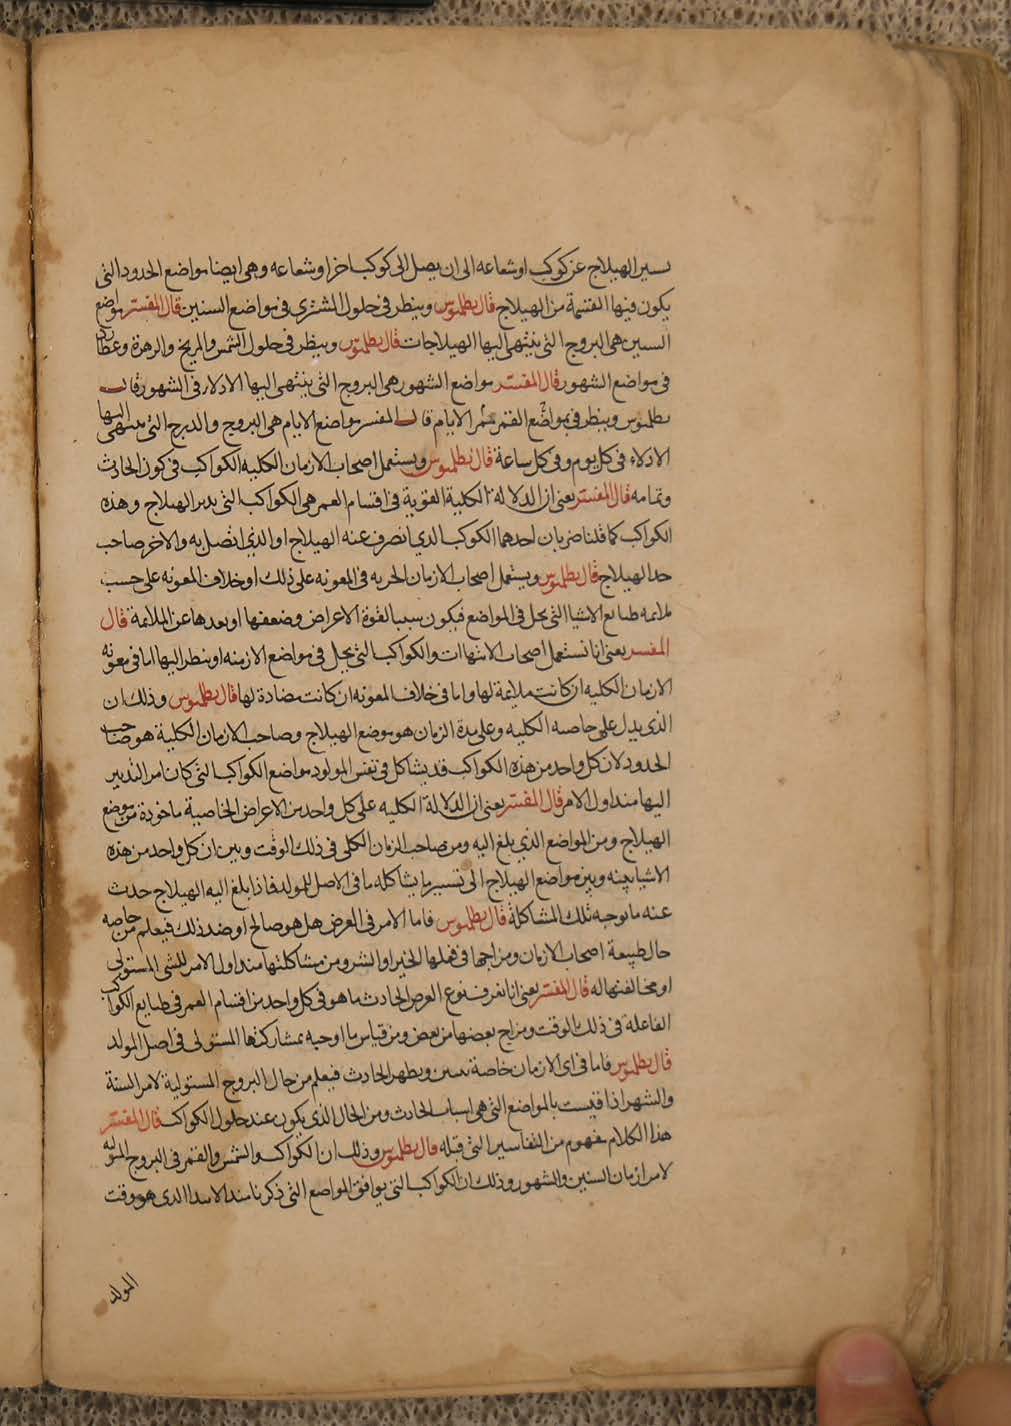 تسير الهيلاج عن كوكب او شعاعه الى ان يصل الى كوكب اخر او شعاعه وهى ايضا مواضع الحدود التى
يكون فيها القسمة من الهيلاج قال بطلميوس وينظر فى حلول المشترى فى مواضع السنين قال المفسر مواضع
السنين هى البروج التى ينتهى اليها الهيلاجات قال بطلميوس وينظر فى حلول الشمس والمريخ والزهرة وعطارد
فى مواضع الشهور قال المفسر مواضع الشهور هى البروج التى ينتهى اليها الادلاء فى الشهور قال
بطلميوس وينظر فى مواضع القمر ممر الايام قال المفسر مواضع الايام هى البروج والدرج التى ينتهى اليها
الادلاء فى كل يوم وفى كل ساعة قال بطلميوس ويستعمل اصحاب الازمان الكليه الكواكب فى كون الحادث
وتمامه قال المفسر يعنى ان الدلالة الكلية القوية فى اقسام العمر هى الكواكب التى يدبر الهيلاج وهذه
الكواكب كما قلنا ضربان احدهما الكوكب الذى انصرف عنه الهيلاج او الذى اتصل به والاخر صاحب
حد الهيلاج قال بطلميوس ويستعمل اصحاب الازمان الجزيه فى المعونه على ذلك او خلاف المعونه على حسب
ملائمه طبائع الاشيا التى تحل فى المواضع فيكون سببا لقوة الاعراض وضعفها او بعدها عن الملائمة قال
المفسر يعنى انا نستعمل اصحاب الانتهاات والكواكب التى يحل فى مواضع الازمنه او ينظر اليها اما فى معونه
الازمان الكليه ان كانت ملايمة لها واما فى خلاف المعونه ان كانت مضادة لها قال بطلميوس وذلك ان
الذى يدل على خاصه الكليه وعلى مدة الزمان هو موضع الهيلاج وصاحب الازمان الكلية هو صاحب
الحدود لان كل واحد من هذه الكواكب قد يشاكل فى نفس المولود مواضع الكواكب التى كان امر التدبير
اليها منذ اول الامر قال المفسر يعنى ان الدلالة الكليه على كل واحد من الاعراض الخاصية ماخوذة من موضع
الهيلاج ومن المواضع الذى بلغ اليه ومن صاحب الزمان الكلى فى ذلك الوقت وبين ان كل واحد من هذه
الاشيا بينه وبين مواضع الهيلاج الى تسير ما يشاكله ما فى الاصل للمولد فاذا بلغ اليه الهيلاج حدث
عنه ما توجبه تلك المشاكلة قال بطلميوس فاما الامر فى العرض هل هو صالح او ضد ذلك فيعلم من خاصه
حال طبيعة اصحاب الازمان ومزاجها فى فعلها الخير او الشر ومن مشاكلتها منذ اول الامر للشى المستولى
او مخالفتها له قال المفسر يعنى انا نعرف نوع العرض الحادث ما هو فى كل واحد من اقسام العمر فى طبايع الكواكب
الفاعلة فى ذلك الوقت ومزاج بعضها من بعض ومن قياس ما اوجبه بمشاركتها المستولى فى اصل المولد
قال بطلميوس فاما فى اى الازمان خاصة يتبين ويظهر الحادث فيعلم من حال البروج المستولية لامر السنة
والشهر اذا قيست بالمواضع التى هى اسباب الحادث ومن الحال الذى يكون عند حلول الكواكب قال المفسر
هذا الكلام مفهوم من التفاسير التى قبله قال بطلميوس وذلك ان الكواكب والشمس والقمر فى البروج المتوليه
لامر ازمان السنين والشهور وذلك ان الكواكب التى يوافق المواضع التى ذكرنا منذ الابتدا الذى هو وقت
المولد